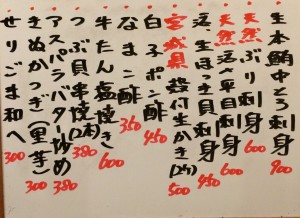 生本鮪中とろ刺身 900
天然ぶり刺身 600
天然活〆平目刺身 600
活生ほっき貝刺身 450
宮城県殻付生かき(2ケ) 500
白子ポン酢 450
なまこ酢 350
牛たん塩焼き 600
つぶ貝串焼(2本) 380
アスパラバター炒め 380
きぬかつぎ(里芋) 300
せりごま和へ 300